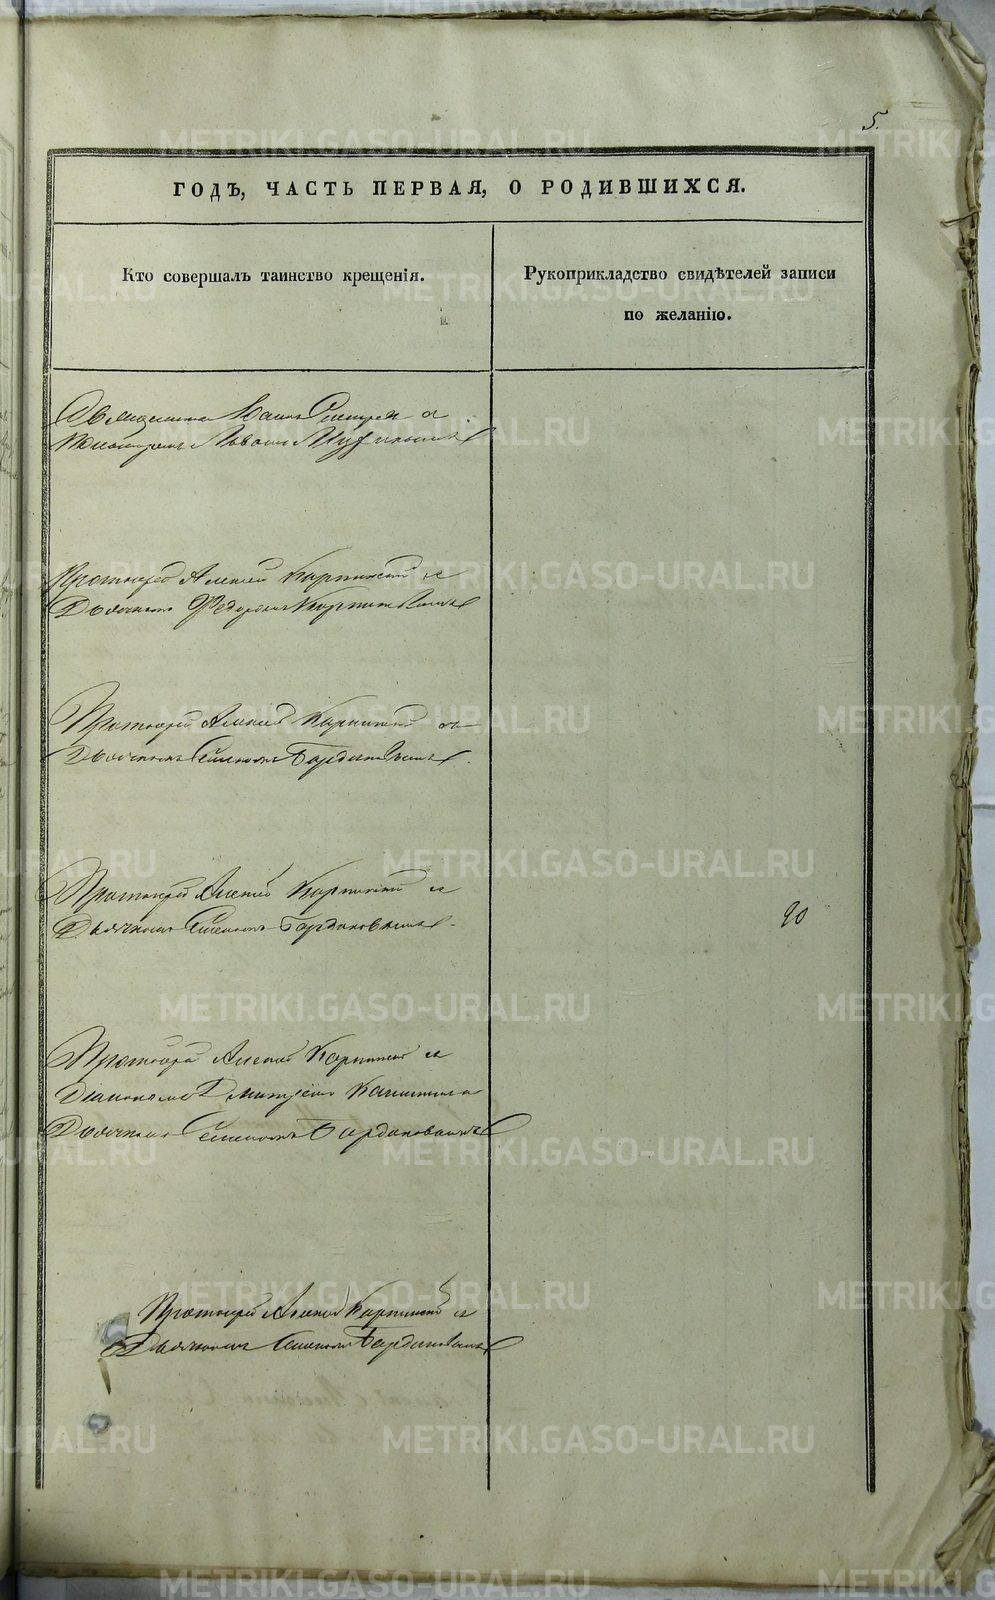 5.
ГОДЪ, ЧАСТЬ ПЕРВАЯ, О РОДИВШИХСЯ.
Кто совершалъ таинство крещенія.
Рукоприкладство свидѣтелей записи
по желанію.
Священник и
Протоіерей Алексей Карпинскій и
Дьячкомъ Федоромъ
Протоіерей Алексей Карпинскій и
Дьячкомъ Семеномъ Бардаковымъ
Протоіерей Алексей Карпинскій и
Дьячкомъ Семеномъ Бардаковымъ.
90
Протоіерей Алексей Карпинскій и
Діакономъ Дмитріемъ
Дьячкомъ Семеномъ Бардаковымъ
Протоіерей Алексей Карпинскій и
Дьячкомъ Семеномъ Бардаковымъ
METRIKI.GASO-URAL.RU